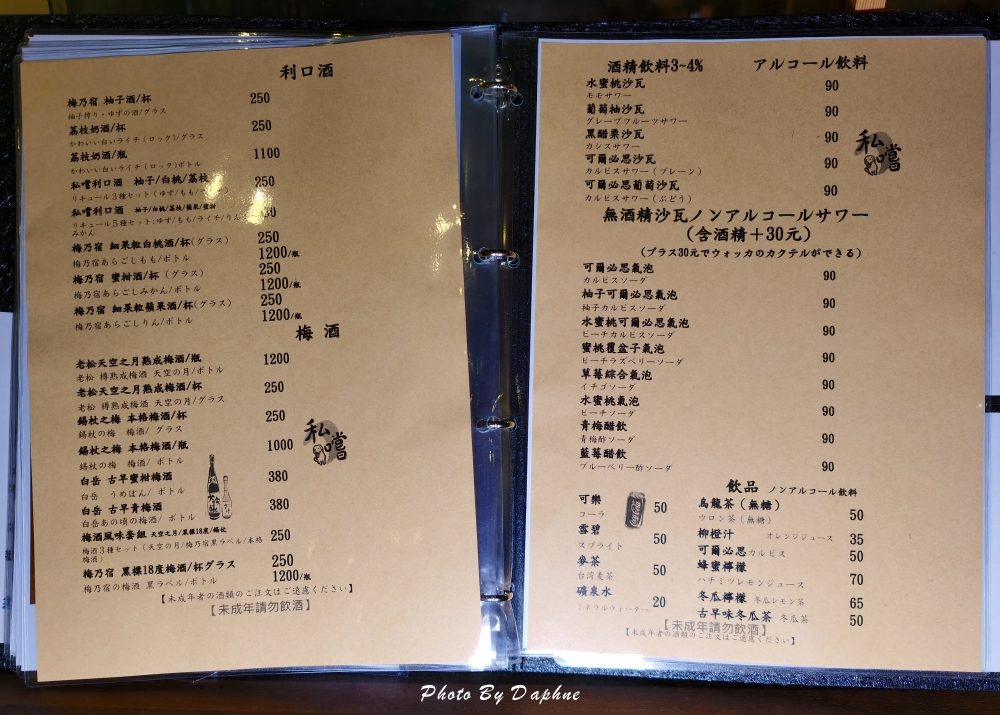 利口酒
梅乃宿 柚子酒/杯 250
柚子搾り・ゆずの酒/グラス
荔枝奶酒/杯 250
かわいい白いライチ(ロック)/グラス
荔枝奶酒/瓶 1100
かわいい白いライチ(ロック)ボトル
私嚐利口酒 柚子/白桃/荔枝 250
リキュール3種セット(ゆず/もも/
私嚐利口酒 柚子/白桃/荔枝/蘋果/蜜柑
リキュール5種セット:ゆず/もも/ライチ/りん
みかん
梅乃宿 細果粒白桃酒/杯(グラス) 250
梅乃宿あらごしもも/ボトル 1200/瓶
梅乃宿 蜜柑酒/杯 (グラス) 250
梅乃宿あらごしみかん/ボトル 1200/瓶
梅乃宿 細果粒蘋果酒/杯(グラス) 250
梅乃宿あらごしりん/ボトル 1200/瓶
梅 酒
老松天空之月熟成梅酒/瓶 1200
老松 樽熟成梅酒 天空の月/ボトル
老松天空之月熟成梅酒/杯 250
老松 樽熟成梅酒 天空の月/グラス
錫杖之梅 本格梅酒/杯 250
錫杖の梅 梅酒/ グラス
錫杖之梅 本格梅酒/瓶 1000
錫杖の梅 梅酒/ ボトル
白岳 古早蜜柑梅酒 380
白岳 うめぽん/ ボトル
白岳 古早青梅酒 380
白岳あの頃の梅酒/ ボトル
梅酒風味套組 天空之月/黑標18度/錫杖 250
梅酒3種セット(天空の月/梅乃宿黒ラベル/本格
梅酒)
梅乃宿 黑標18度梅酒/杯グラス 250
梅乃宿の梅酒 黒ラベル/ボトル 1200/瓶
【未成年者の酒類のご注文はご遠慮ください】
【未成年請勿飲酒】
私嚐
酒精飲料3~4% アルコール飲料
水蜜桃沙瓦 90
モモサワー
葡萄柚沙瓦 90
グレープフルーツサワー
黑醋栗沙瓦 90
カシスサワー
可爾必思沙瓦 90
カルピスサワー(プレーン)
可爾必思葡萄沙瓦 90
カルピスサワー(ぶどう)
私嚐
無酒精沙瓦ノンアルコールサワー
(含酒精+30元)
(プラス30元でウォッカのカクテルができる)
可爾必思氣泡 90
カルピスソーダ
柚子可爾必思氣泡 90
柚子カルピスソーダ
水蜜桃可爾必思氣泡 90
ピーチカルピスソーダ
蜜桃覆盆子氣泡 90
ピーチラズベリーソーダ
草莓綜合氣泡 90
イチゴソーダ
水蜜桃氣泡 90
ピーチソーダ
青梅醋飲 90
青梅酢ソーダ
藍莓醋飲 90
ブルーベリー酢ソーダ
飲品 ノンアルコール飲料
可樂 50
コーラ
雪碧 50
スプライト
麥茶 50
台湾麦茶
礦泉水 20
ミネラルウォーター
烏龍茶(無糖) 50
ウロン茶(無糖)
柳橙汁 オレンジジュース 35
可爾必思カルピス 50
蜂蜜檸檬 70
ハチミツレモンジュース
冬瓜檸檬 冬瓜レモン茶 65
古早味冬瓜茶 冬瓜茶 50
【未成年請勿飲酒】
【未成年者の酒類のご注文はご遠慮ください】
Photo By Daphne